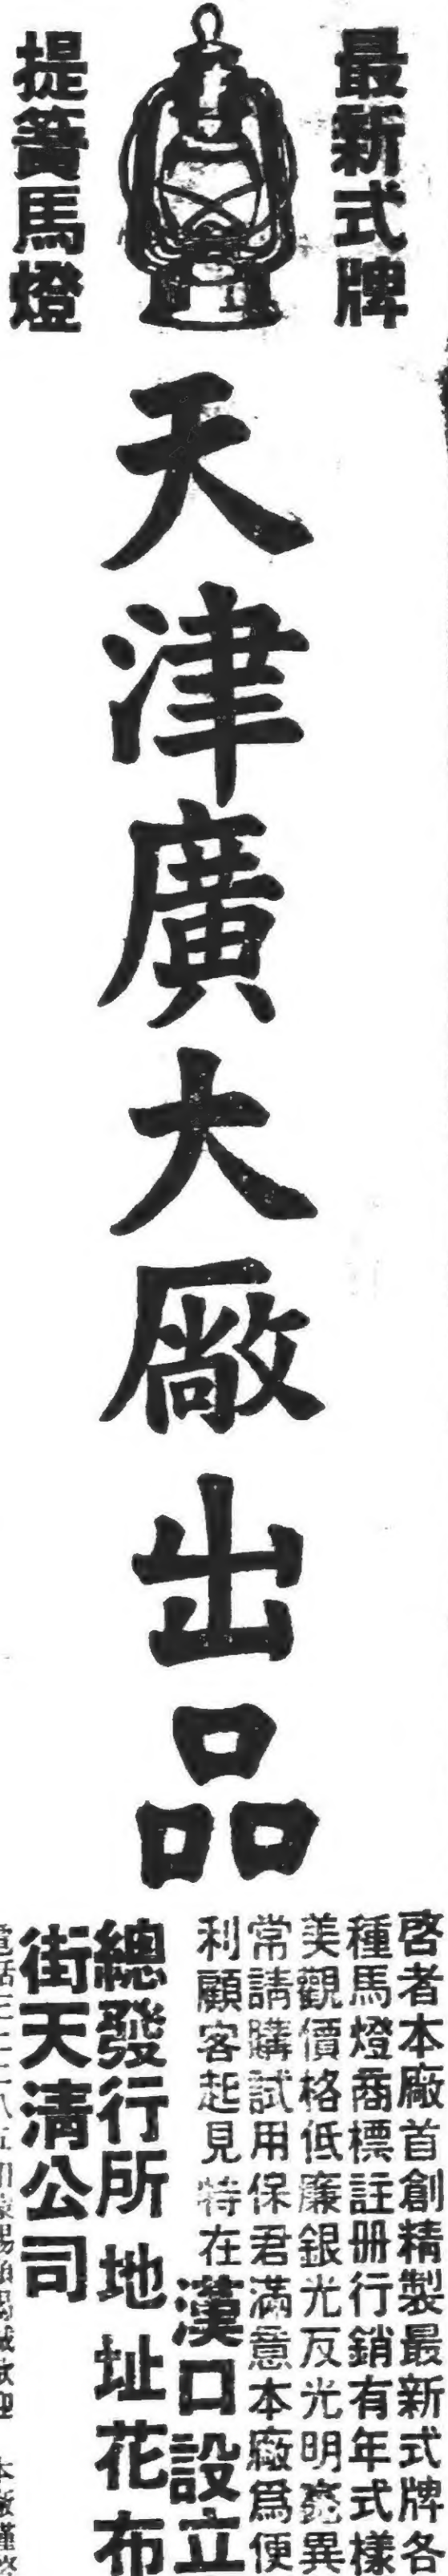 最新式牌
提籌馬燈
天津廣大廠出品
啓者本廠首創精製最新式牌各
種馬燈商標註册行銷有年式樣
美觀價格低廉銀光反光明亮異
常請購試用保君滿意本廠爲便
利顧客起見特在漢口設立
總發行所 地址花布
街天清公司
電話三二二八五